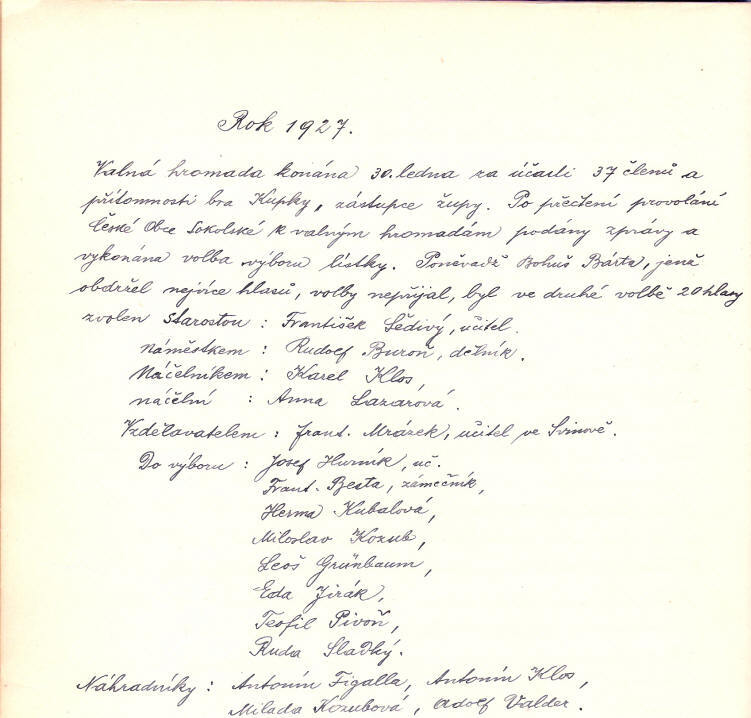 Rok 1927.
Valná hromada konána 30. ledna za účasti 37 členů a
přítomnosti bra Kupky, zástupce župy. Po přečtení provolání
České Obce Sokolské k valným hromadám podány zprávy a
vykonána volba výboru lístky. Poněvadž Bohuš Bárta, jenž
obdržel nejvíce hlasů, volby nepřijal, byl ve druhé volbě 20 hlasy
zvolen starostou : František Šedivý, učitel.
náměstkem : Rudolf Buroň, dělník.
Náčelníkem : Karel Klos,
náčelní : Anna Lazarová.
Vzdělavatelem : Frant. Mrázek, učitel ve Svinově.
Do výboru : Josef Hurník, uč.
Frant. Besta, zámečník,
Herma Kubalová,
Miloslav Kozub,
Leoš Grünbaum,
Eda Jirák,
Teofil Pivoň,
Ruda Sladký.
Náhradníky : Antonín Figalla, Antonín Klos,
Milada Kozubová, Adolf Valder.